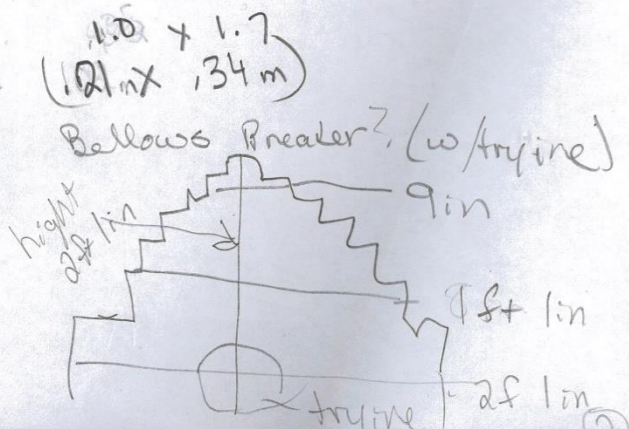 1.0 x 1.7
(.21m x .34m)
Bellows Breaker? (w/tryine)
9in
hight
2ft 1in
1ft 1in
2f 1in
tryine
2